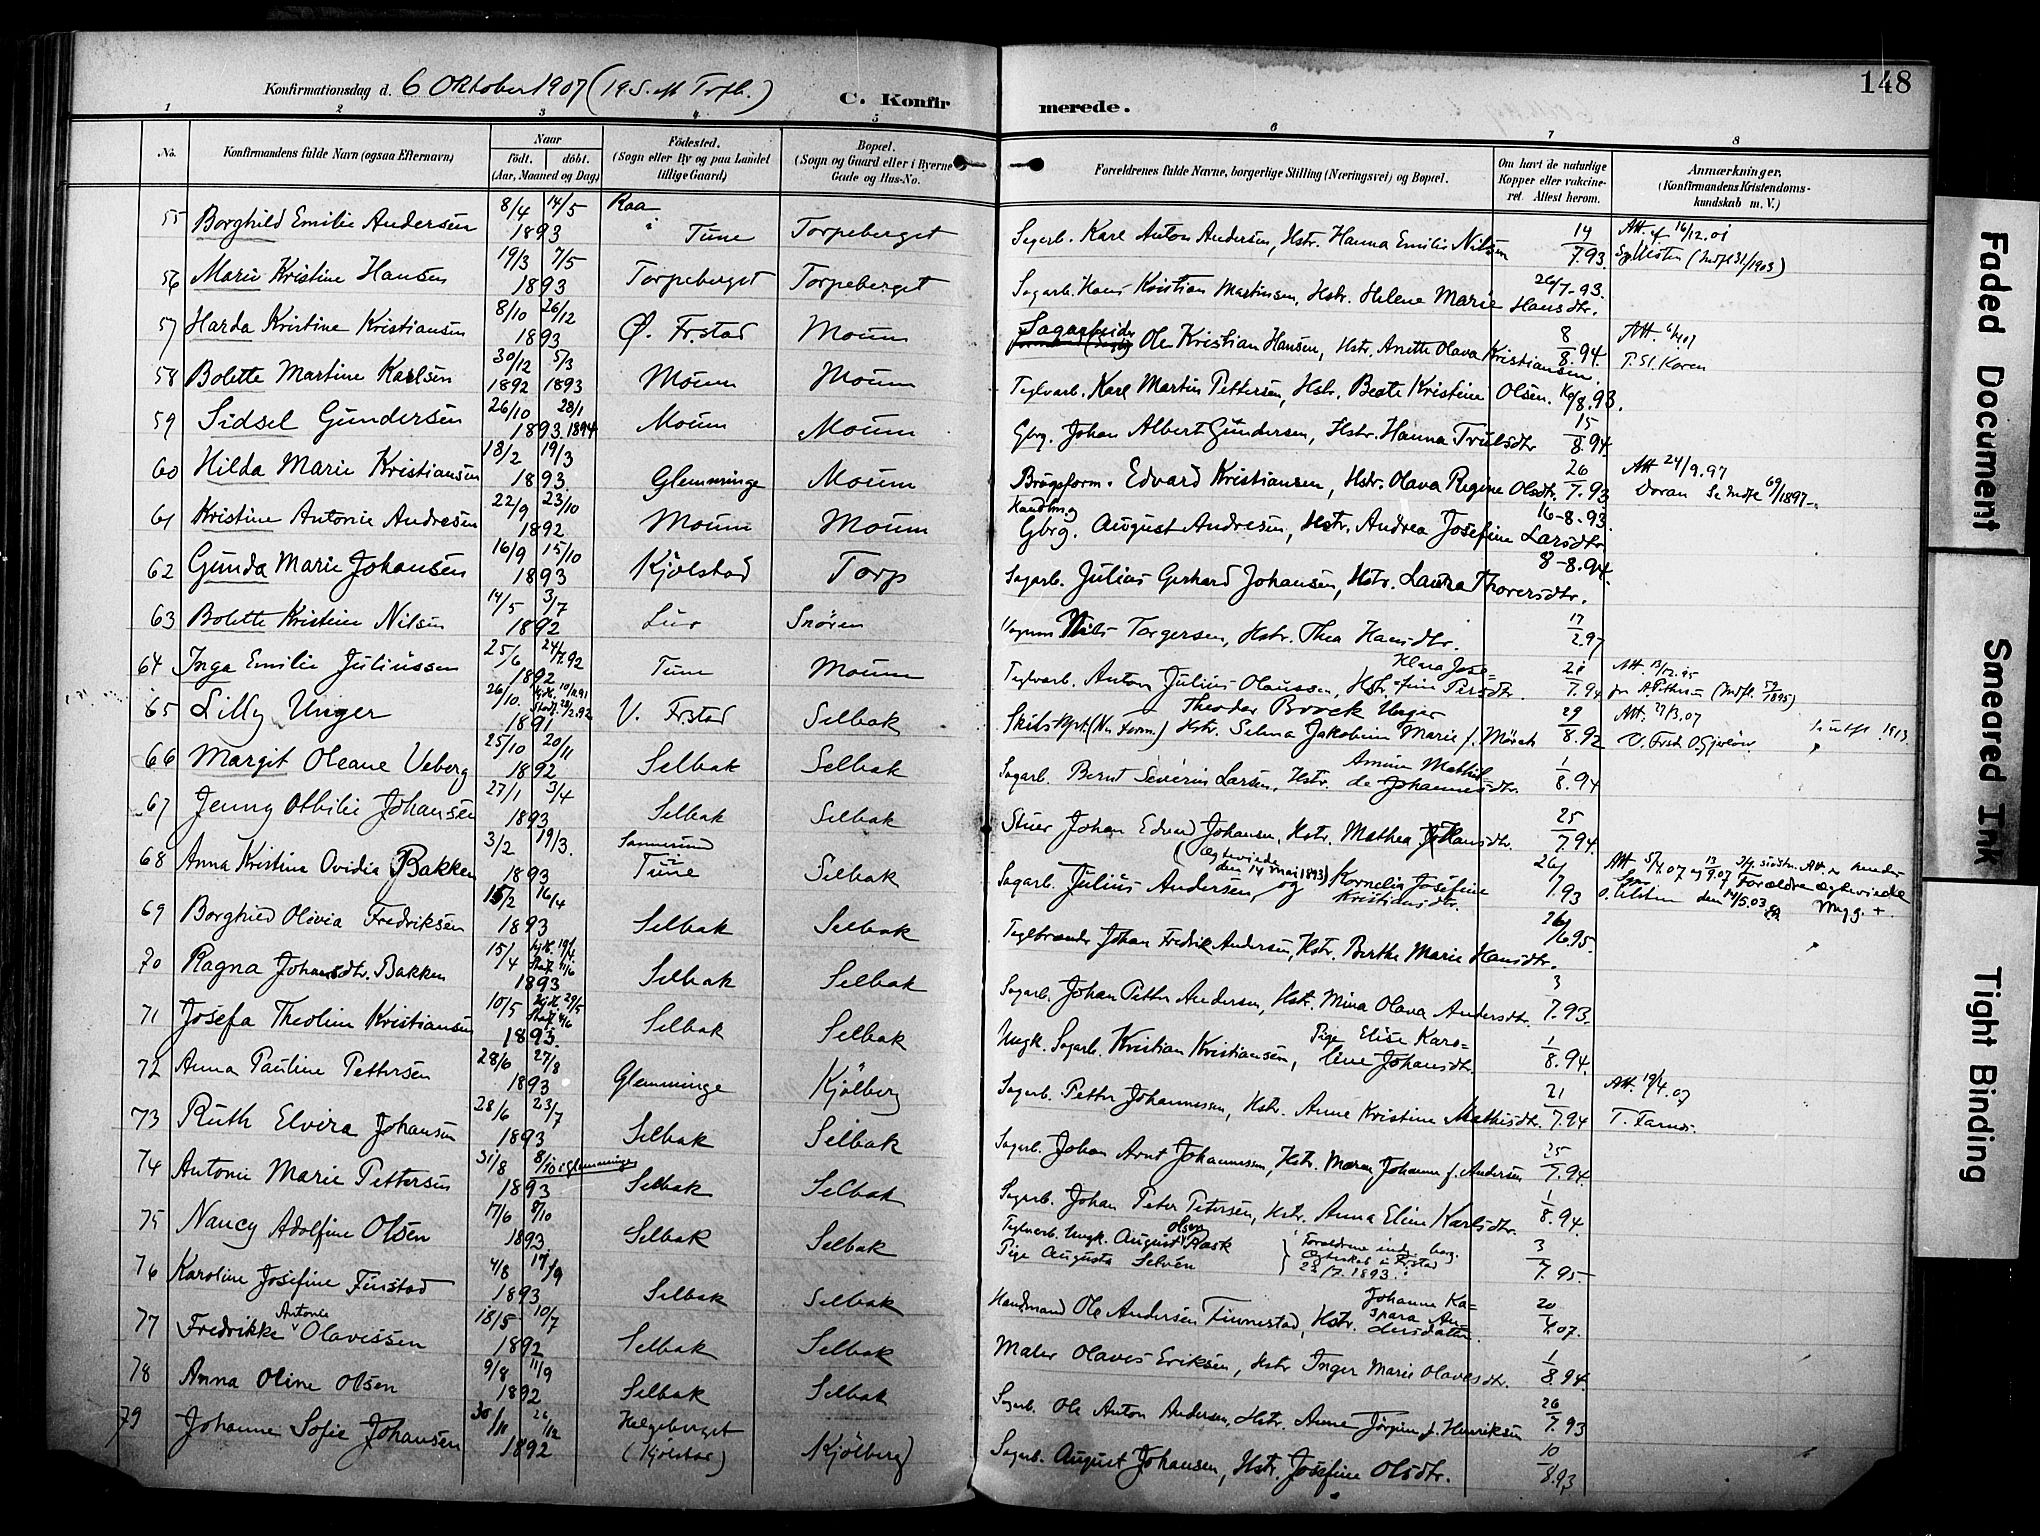 148
Konfirmationsdag d. 6 Oktober 1907 (19 S. eft Trfh.) C. Konfirmerede.
1 2 3 4 5 6 7 8
No. Konfirmandens fulde Navn (ogsaa Efternavn) Naar født. døbt. (Aar, Maaned og Dag) Fødested. (Sogn eller By og paa Landet tillige Gaard) Bopæl. (Sogn og Gaard eller i Byerne Gade og Hus-No. Forældrenes fulde Navne, borgerlige Stilling (Næringsvei) og Bopæl. Om havt de naturlige Kopper eller vakcineret. Attest herom. Anmærkninger. (Konfirmandens Kristendomskundskab m. V.)
55 Borghild Emilie Andersen 8/4 14/5 1893 Raa i Tune Torpeberget Sagarb. Karl Anton Andersen, Hstr. Hanna Emilie Nilsen 14/7.93. Att. 16/12.01 (Indfl 31/1903)
56 Marie Kristine Hansen 19/3 7/5 1893 Torpeberget Torpeberget Sagarb. Hans Kristian Martinsen, Hstr. Helene Marie Hansdtr. 26/7-93.
57 Harda Kristine Kristiansen 8/10 26/12 1893 Ø. Frstad Moum Sagarbeider Ole Kristian Hansen, Hstr. Anette Olava Kristiansen. 8/8.94. Att. T. St. Koren
58 Bolette Martine Karlsen 30/12 1892 5/3 1893 Moum Moum Teglvarb. Karl Martin Pettersen, Hstr. Beate Kristine Olsen. 16/8.93.
59 Sidsel Gundersen 26/10 1893 28/1 1894 Moum Moum Gbrg. Johan Albert Gundersen, Hstr. Hanna Trulsdtr 15/8.94.
60 Hilda Marie Kristiansen 18/2 19/3 1893 Glemminge Moum Brugsform. Edvard Kristiansen, Hstr. Olava Regine Olsdtr. 26/7.93 Att 24/9.97 Se Indfl 69/1897
61 Kristine Antonie Andresen 22/9 23/10 1892 Moum Moum Handlm. og Gbrg. August Andresen, Hstr. Andrea Josefine Larsdtr 16-8-93.
62 Gunda Marie Johansen 16/9 15/10 1893 Kjölstad Torp Sagarb. Julius Gerhard Johansen, Hstr. Laura Thoversdtr. 8-8.94.
63 Bolette Kristine Nilsen 14/5 3/7 1892 Lur Snören Nils Torgersen, Hstr. Thea Hansdtr. 17/2.97
64 Inga Emilie Juliussen 25/6 24/7.92 1892 Tune Moum Teglvarb. Anton Julius Olaussen, Hstr. Klara Josefine Persdtr. 21/7.94 Att. 13/12.95 (Indfl. 59/1895)
65 Lilly Unger 26/10. Hjdb. 10/12.91 Stadf. 28/2.92 1891 V. Frstad Selbak Skibskpt. Theodor Brock Unger Hstr. Selma Jakobine Marie f. Mörch 29/8.92 Att. 27/3.07 V. Frst.
66 Margit Oleane Veberg 25/10 20/11 1892 Selbak Selbak Sagarb. Bernt Severin Larsen, Hstr. Amine Mathilde Johannesdtr. 1/8.94
67 Jenny Othilie Johansen 27/1 3/4 1893 Selbak Selbak Stuer Johan Edvard Johansen, Hstr. Mathea Johansdtr. 25/7.94.
68 Anna Kristine Ovidia Bakken 3/2 19/3. 1893 Sannesund i Tune Selbak Sagarb. Julius Andersen, (Ægteviede den 14 mai 1893) og Kornelia Josefine Kristiansdtr. 26/7.93 Att
69 Borghild Olivia Fredriksen 15/2 16/4 1893 Selbak Selbak Teglbrænder Johan Fredrik Andersen, Hstr. Berthe Marie Hansdtr. 26/6 95
70 Ragna Johansdtr. Bakken 15/4 Hjdb. 19/4. Stadf. 11/6 1893 Selbak Selbak Sagarb. Johan Petter Andersen, Hstr. Mina Olava Andersdtr. 3/7.93.
71 Josefa Theoline Kristiansen 10/5 Hjdb. 29/5 Stadf. 1893. Selbak Selbak Ungk. Sagarb. Kristian Kristiansen, Pige Elise Karoline Johansdtr. 1/8.94.
72 Anna Pauline Pettersen 28/6 27/8 1893 Glemminge Kjölberg Sagarb. Petter Johannessen, Hstr. Anne Kristine Mathisdtr. 21/7.94 Att. 19/4.07
73 Ruth Elvira Johansen 28/6 23/7 1893 Selbak Selbak Sagarb. Johan Arnt Johannessen, Hstr. Maren Johanne f. Andersen 25/7.94.
74 Antonie Marie Pettersen 31/8 8/10 i Glemminge 1893 Selbak Selbak Sagarb. Johan Peter Petersen, Hstr. Anna Eline Karlsdtr. 1/8.94.
75 Nancy Adolfine Olsen 17/6 8/10 1893 Selbak Selbak Teglverb. Ungk. August Olsen Aask Pige Augusta Selvén Forældrene indg. borg. Ægteskab i Frstad 23/7.1893. 3/7.95.
76 Karoline Josefine Finstad 4/8 17/9 1893 Selbak Selbak Handlmand Ole Andersen Finnestad, Hstr. Johanne Kaspara Andersdatter. 20/4.07.
77 Fredrikke Antonie Olavessen 18/5 10/7 1892 Selbak Selbak Maler Olaves Eriksen, Hstr Inger Marie Olavesdtr. 1/8.94.
78 Anna Oline Olsen 9/8 11/9 1892 Selbak Selbak Sagarb. Ole Anton Andersen, Hstr. Anne Jörgine f. Henriksen 26/7.93
79 Johanne Sofie Johansen 30/11 26/12 1892 Helgeberget (Kjölstad) Kjölberg Sagarb. August Johansen, Hstr. Josefine Olsdtr. 10/8.93
Faded Document
Smeared Ink
Tight Binding